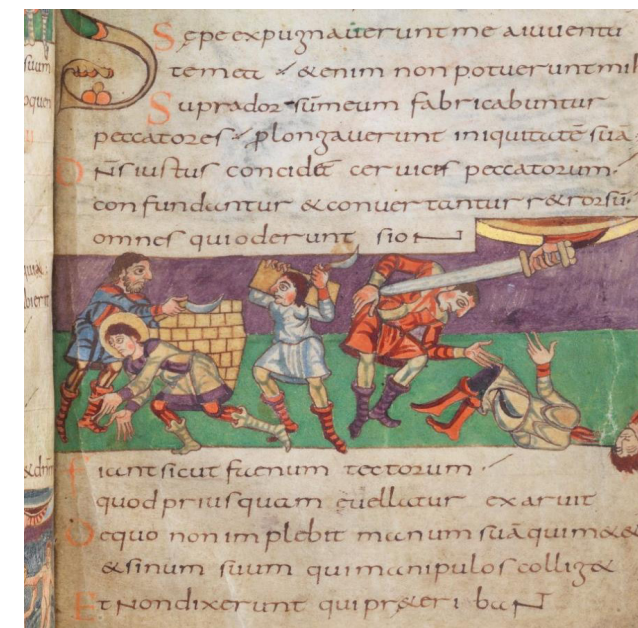 Sepe expugnaverunt me a iuventu
te mea & enim non potuerunt mihi
Supra dorsū meum fabricabuntur
peccatores plongaverunt iniquitatē suā
Dn̄s iustus concidet cervicis peccatorum.
confundantur & convertantur r&rorsū
omnes qui oderunt sion
fiant sicut faenum tectorum
quod priusquam evellatur exaruit
De quo non implebit manum suā qui m&&
& sinum suum qui manipulos collig&
Et non dixerunt qui pr&eriban